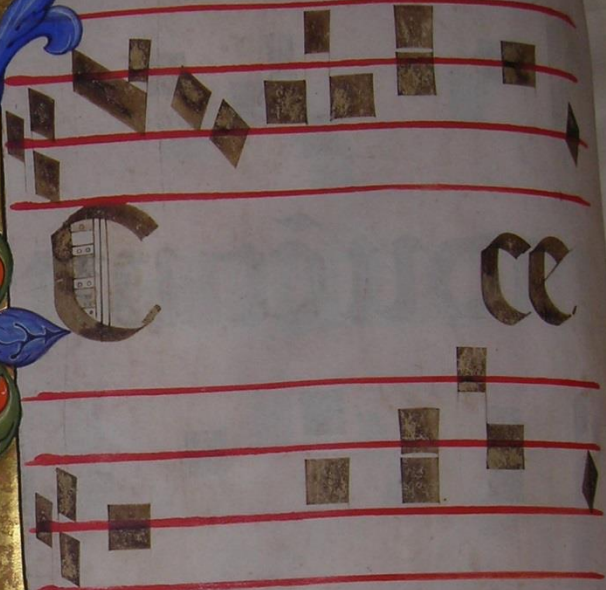 C ce